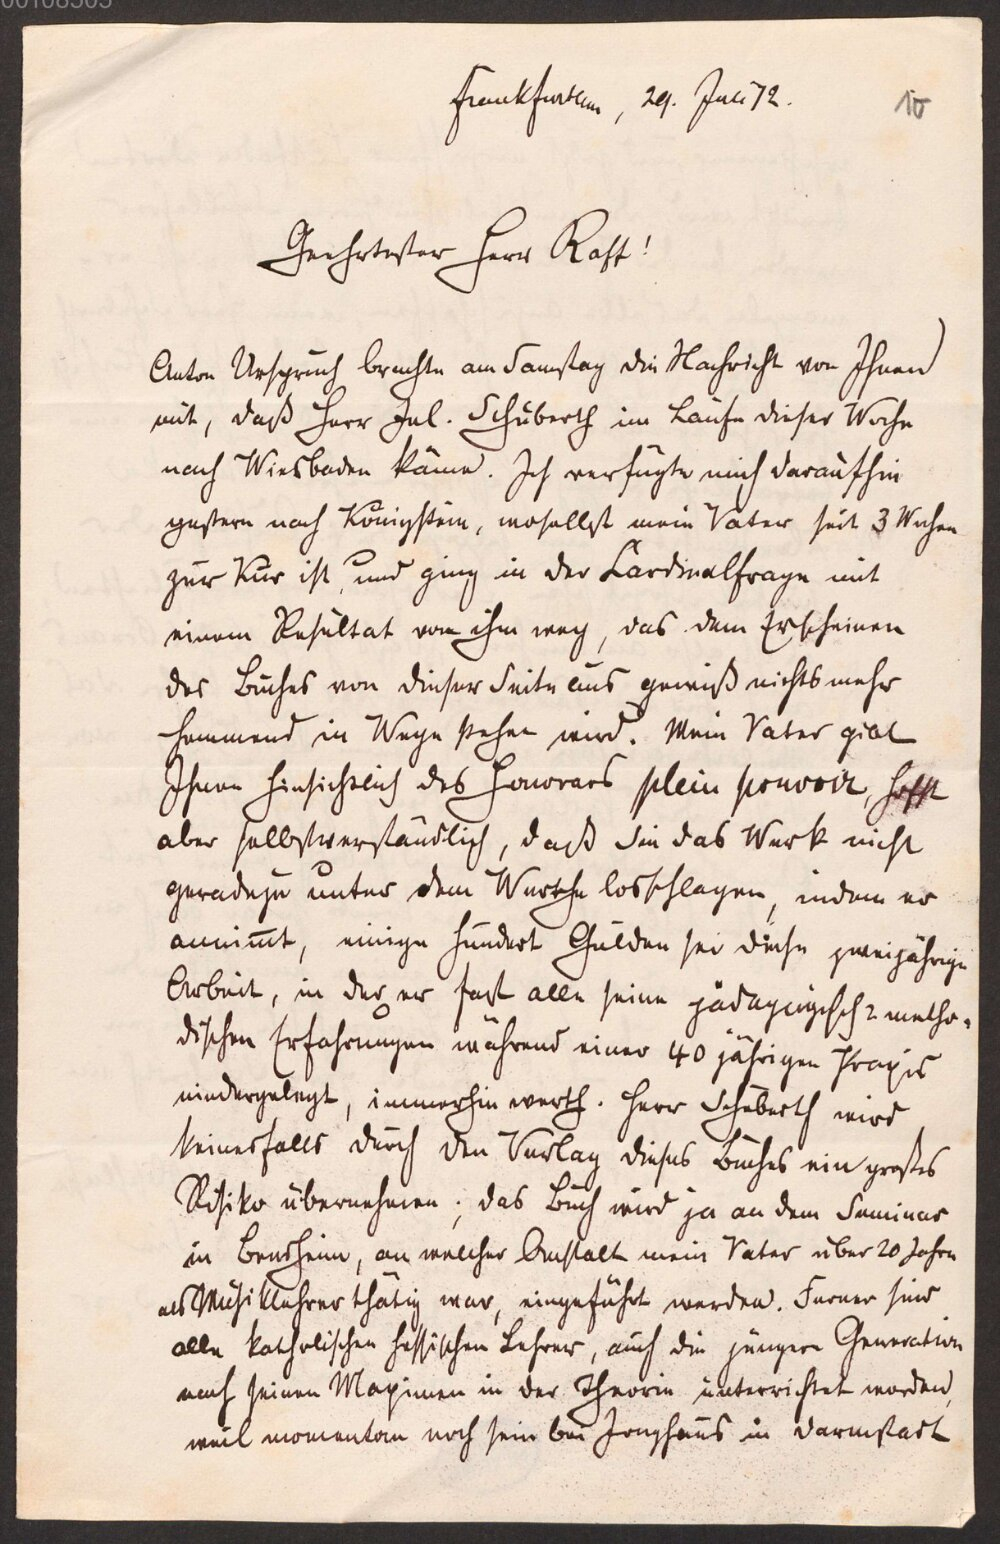 00108505
Frankfurt a/m, 29. Juli 72.
10
Geehrtester Herr Raff!
Anton Urspruch brachte am Samstag die Nachricht von Ihnen
mit, daß Herr Jul. Schuberth im Laufe dieser Woche
nach Wiesbaden käme. Ich verfügte mich daraufhin
gestern nach Königstein, woselbst mein Vater seit 3 Wochen
zur Kur ist, und ging in der Cardinalfrage mit
einem Resultat von ihm weg, das dem Erscheinen
des Buches von dieser Seite aus gewiß nichts mehr
hemmend in Wege stehen wird. Mein Vater gibt
Ihnen hinsichtlich des Honorars plein pouvoir, hofft
aber selbstverständlich, daß Sie das Werk nicht
geradezu unter dem Werthe losschlagen, indem er
annimt, einige hundert Gulden sei diese zweijährige
Arbeit, in der er fast alle seine pädagogisch-metho-
dischen Erfahrungen während einer 40 jährigen Praxis
niedergelegt, immerhin werth. Herr Schuberth wird
keinesfalls durch den Verlag dieses Buches ein großes
Risiko übernehmen; das Buch wird ja an dem Seminar
in Bensheim, an welcher Anstalt mein Vater über 20 Jahre
als Musiklehrer thätig war, eingeführt werden. Ferner sind
alle katholischen hessischen Lehrer, auch die jüngere Generation
nach seinen Maximen in der Theorie unterrichtet worden,
weil momentan noch sein bei Jonghaus in Darmstadt